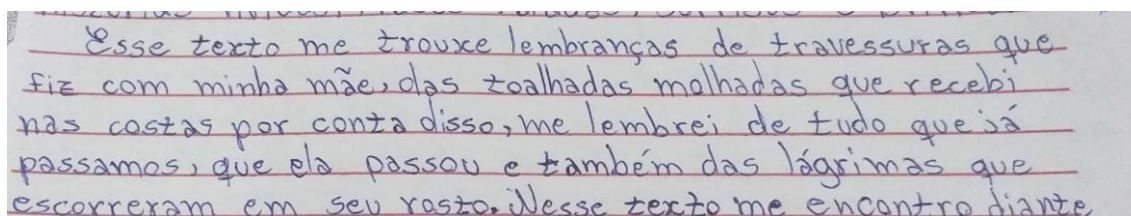 Esse texto me trouxe lembranças de travessuras que
fiz com minha mãe, das toalhadas molhadas que recebi
nas costas por conta disso, me lembrei de tudo que já
passamos, que ela passou e também das lágrimas que
escorreram em seu rosto. Nesse texto me encontro diante